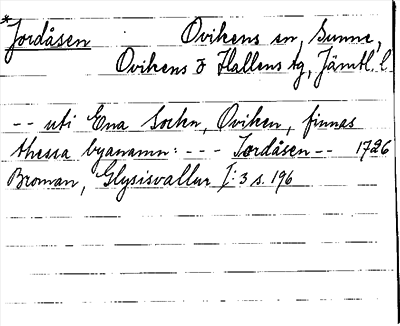 *Jordåsen Ovikens sn, Sunne,
Ovikens & Hallens tg, Jämtl. l.
-- uti Ena Sockn, Oviken, finnas
thessa byanamn: --- Jordåsen -- 1726
Broman, Glysisvallur I: 3 s. 196